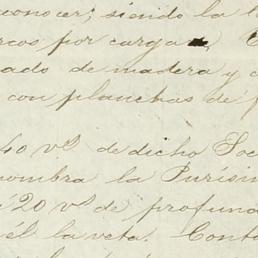 conocer; siendo la l
rcos por carga
ado de madera y c
con planchas de f
40 vs de dicho Soc
nombra la Purisim
a 20 vs de profund
él la veta. Conta